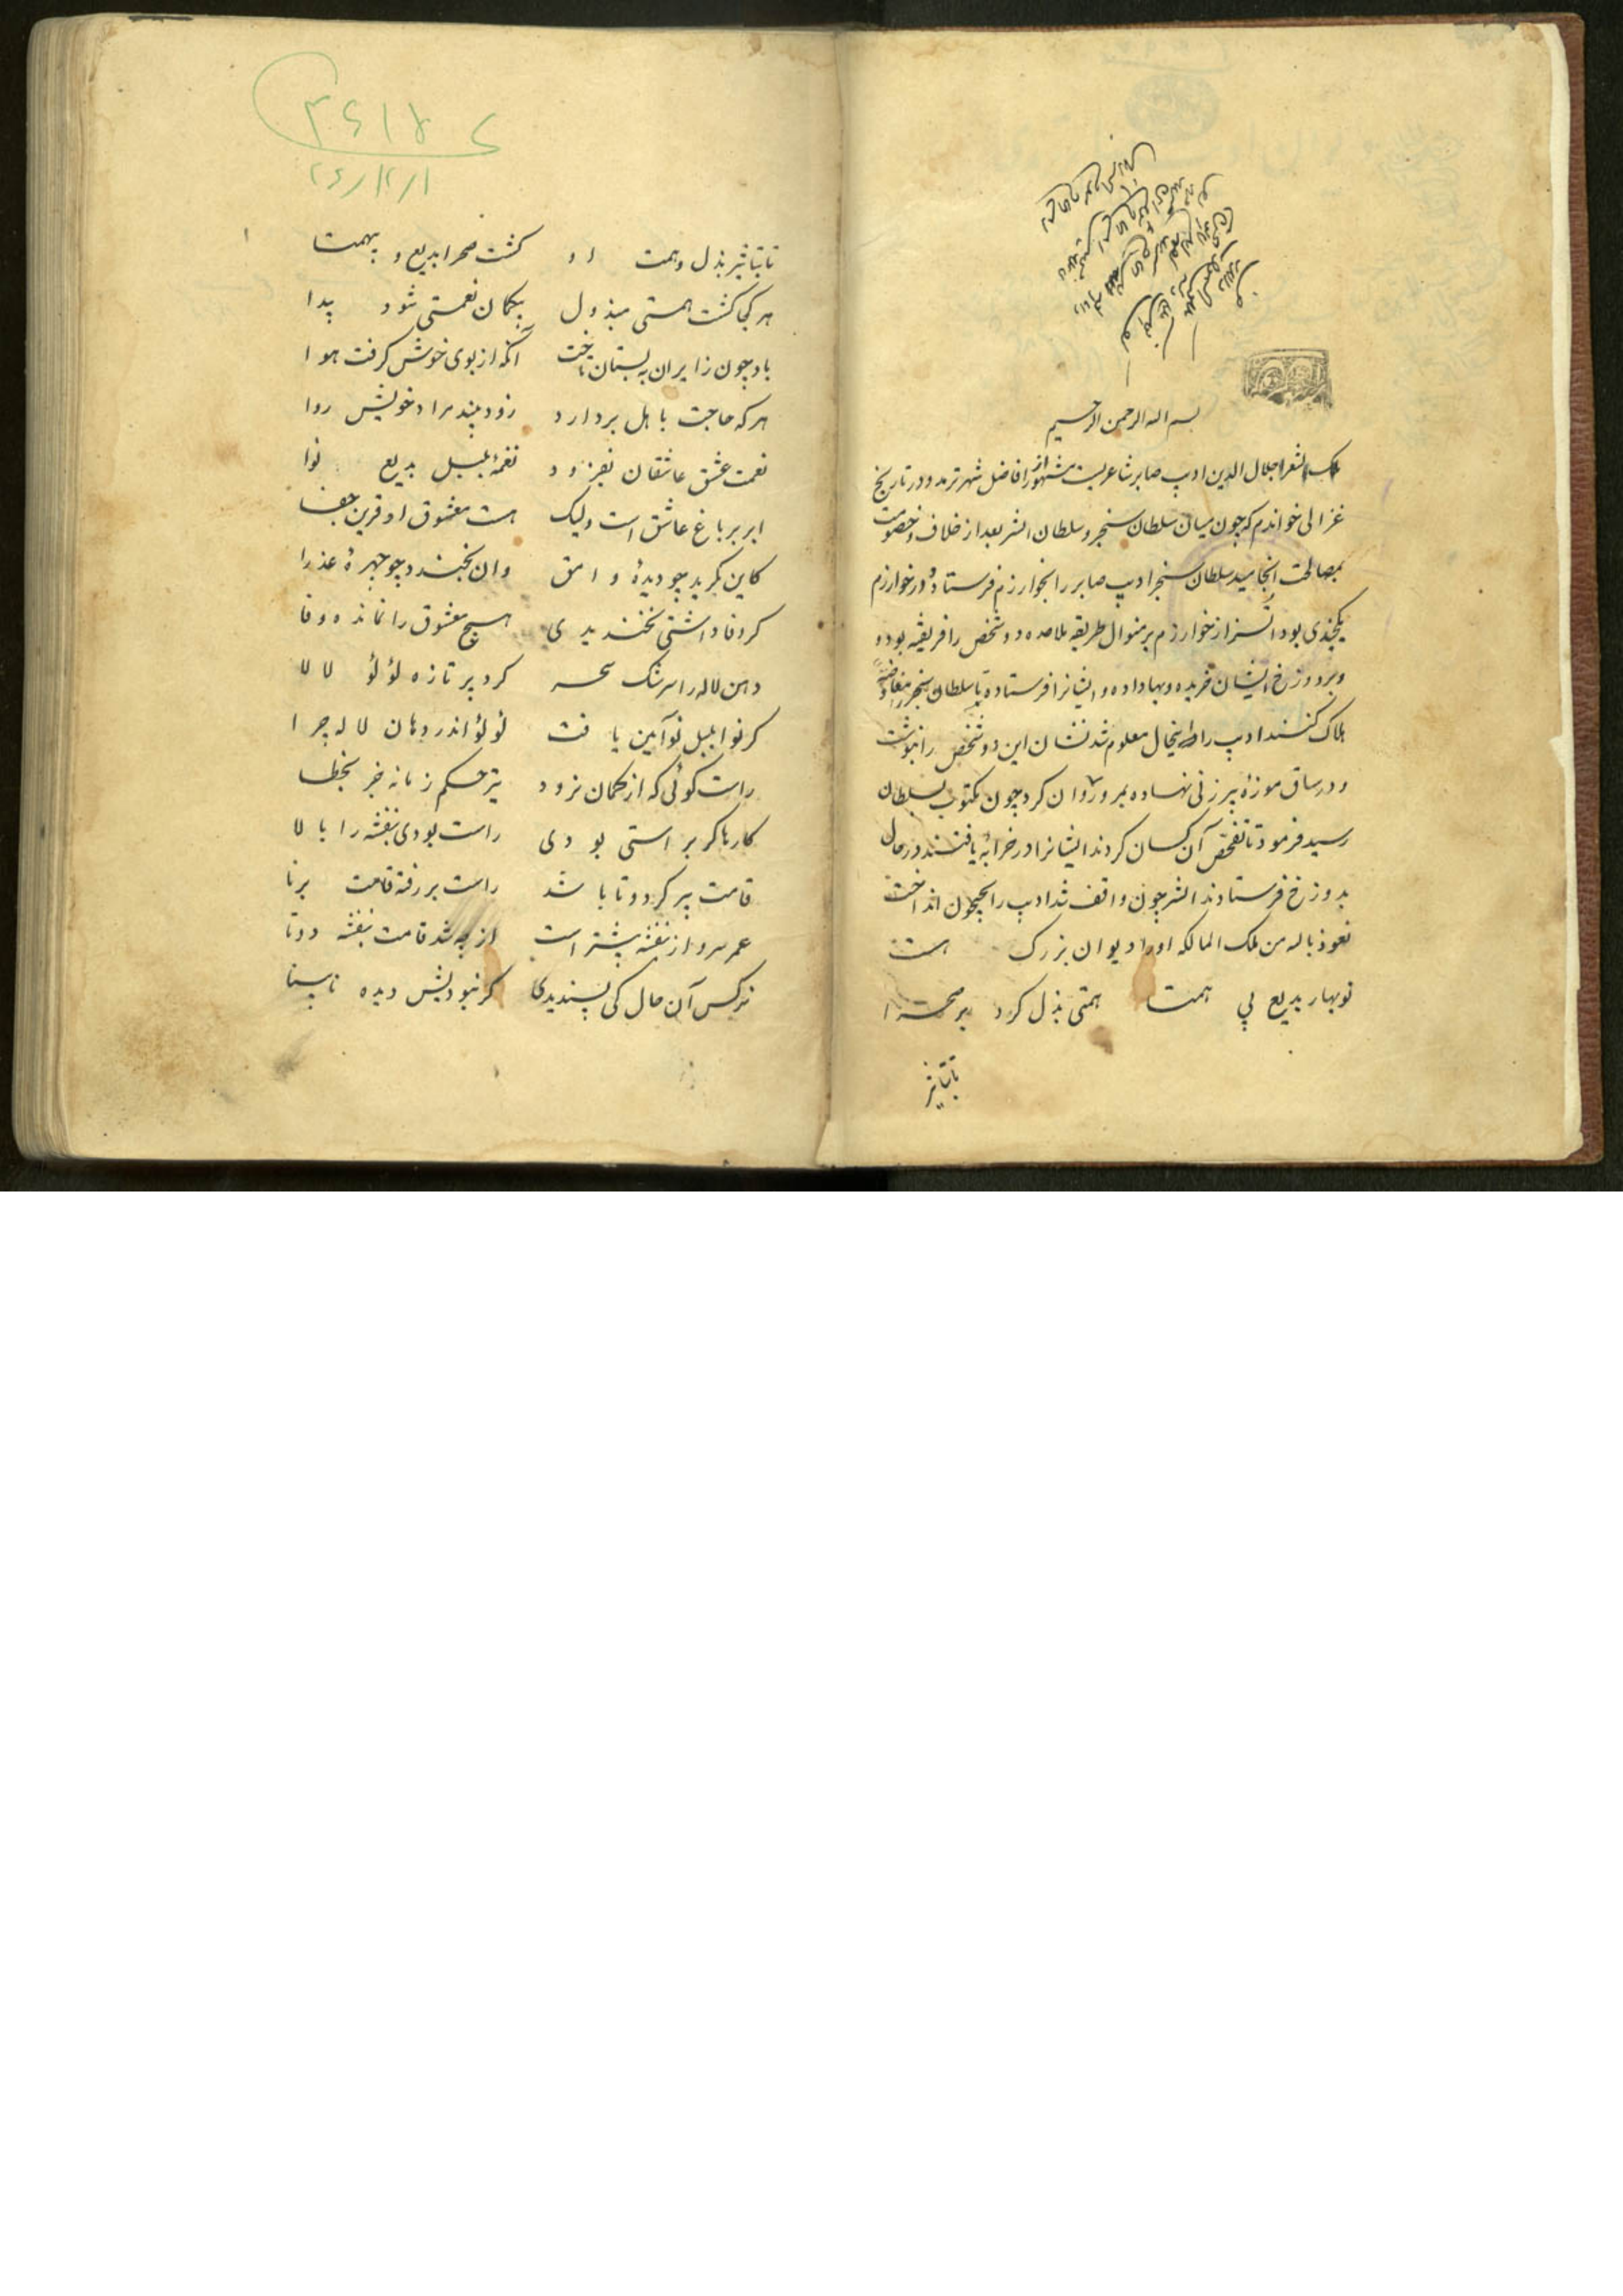 بسم الله الرحمن الرحیم
ملک الشعرا جلال الدین ادیب صابر شاعریست مشهور از افاضل شهر ترمد و در تاریخ
غزالی خواندم که چون میان سلطان سنجر و سلطان اتسز بعد از خلاف و خصومت
بمصالحت انجامید سلطان سنجر ادیب صابر را بخوارزم فرستاد و در خوارزم
یکچندی بود اتسز از خوارزم بر منوال طریقه ملاحده دو شخص را فریفته بود و
و بر دوزخ ایشان خریده و بها داده و ایشانرا فرستاده تا سلطان سنجر را مغافصة
هلاک کنند ادیب را از اینحال معلوم شد نشان این دو شخص را نبوشت
و در ساق موزهٔ پیرزنی نهاده بمرو روان کرد چون مکتوب بسلطان
رسید فرمود تا تفحص آن کسان کردند ایشانرا در خرابهٔ یافتند در حال
بدوزخ فرستادند اتسز چون واقف شد ادیب را بجیحون انداخت
نعوذ بالله من ملک المالکه او را دیوان بزرگ هست
نوبهار بدیع بی همتا همتی بذل کرد بر صحرا
تا بتاثیر
۳۶۱۷۵
۲۶/۱۲/۱
۱
تا بتاثیر بذل و همت او کشت صحرا بدیع و بیهمتا
هر کجا کشت همتی مبذول بیکمان نعمتی شود پیدا
باد چون زایران به بستان تاخت آنکه از بوی خوش کرفت هوا
هر که حاجت باهل بر دارد زود بیند مراد خویش روا
نعمت عشق عاشقان بفزود نغمهٔ بلبل بدیع نوا
ابر بر باغ عاشق است ولیک هست معشوق او قرین جفا
کاین بکرید چو دیدهٔ وامق وان بخندد چو چهرهٔ عذرا
کر وفا داشتی نخندیدی هیچ معشوق را نمانده وفا
دهن لاله را سرشک سحر کرد پر تازه لؤلؤ لالا
کر نوا بلبل نوآیین یافت لؤلؤ اندر دهان لاله چرا
راست کوئی که از کمان نرود تیر حکم زمانه جز بخطا
کارها کر براستی بودی راست بودی بنفشه را بالا
قامت پیر کر دوتا باشد راست بر رفته قامت برنا
عمر سرو از بنفشه بیشتر است از چه شد قامت بنفشه دوتا
نرکس آن حال کی پسندیدی کر نبودیش دیده نابینا